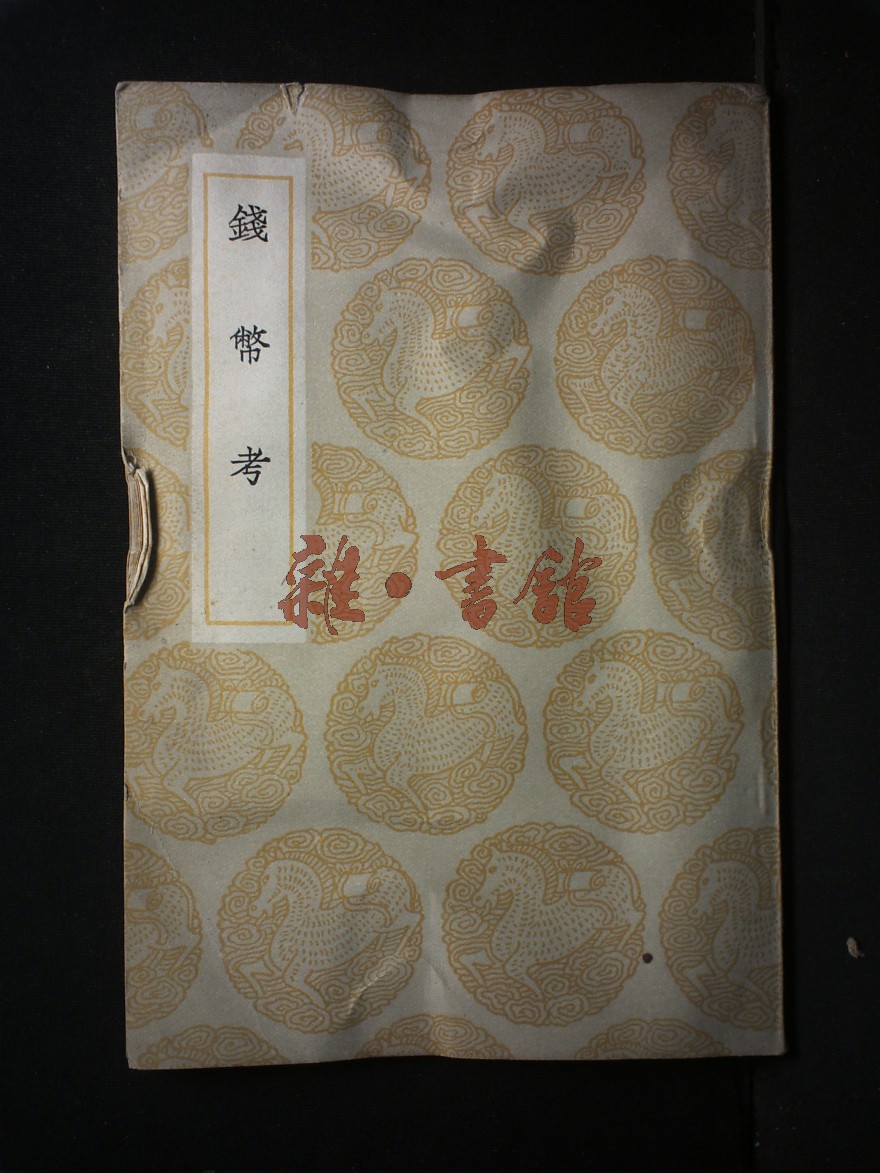 錢幣考
雜·書館